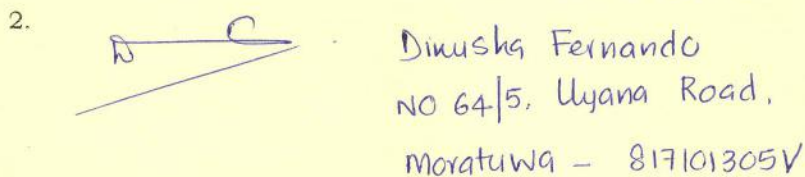 2.
Dinusha Fernando
NO 64/5, Uyana Road,
Moratuwa - 817101305V